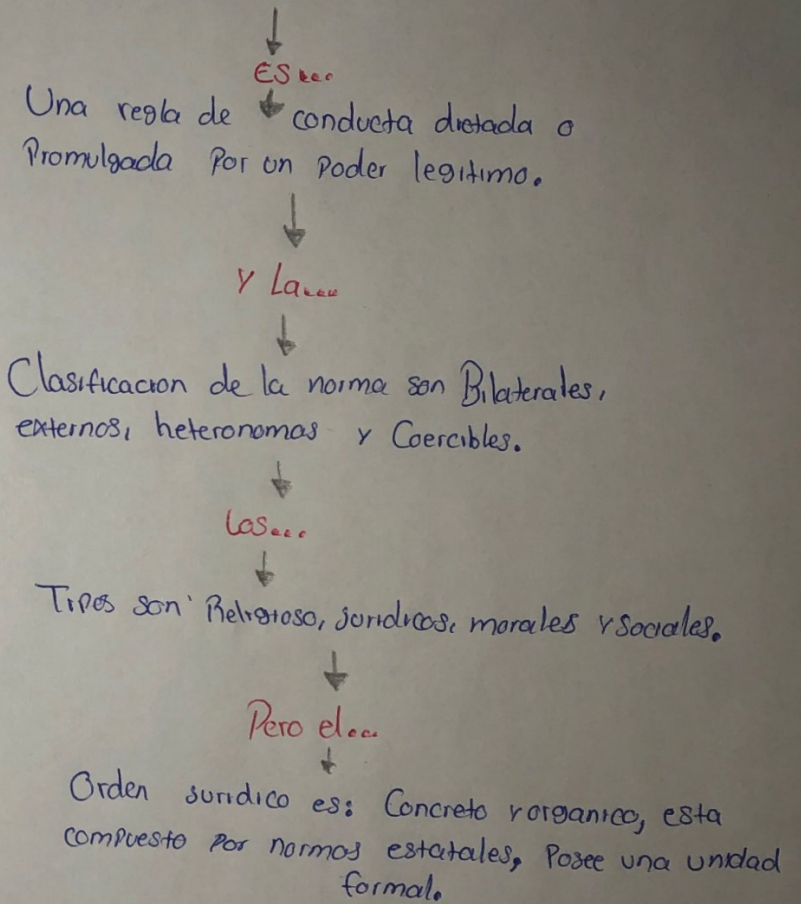 Es...
Una regla de conducta dictada o
Promulgada Por un Poder legitimo.
Y La....
Clasificacion de la norma son Bilaterales,
externos, heteronomas y Coercibles.
Los...
Tipos son: Religioso, juridicos, morales y sociales.
Pero el...
Orden juridico es: Concreto y organico, esta
compuesto por normas estatales, Posee una unidad
formal.